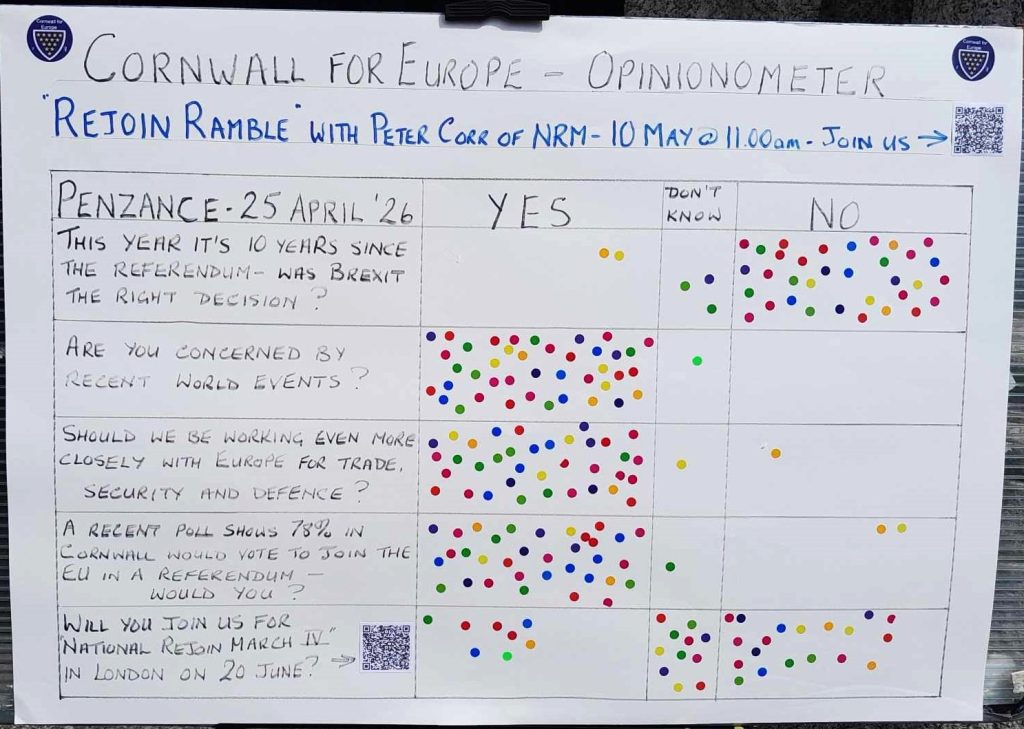 Cornwall for Europe
Cornwall for Europe
CORNWALL FOR EUROPE - OPINIONOMETER
"REJOIN RAMBLE" WITH PETER CORR OF NRM - 10 MAY @ 11.00am - JOIN US →
PENZANCE - 25 APRIL '26
YES
DON'T
KNOW
NO
THIS YEAR IT'S 10 YEARS SINCE
THE REFERENDUM - WAS BREXIT
THE RIGHT DECISION?
ARE YOU CONCERNED BY
RECENT WORLD EVENTS?
SHOULD WE BE WORKING EVEN MORE
CLOSELY WITH EUROPE FOR TRADE,
SECURITY AND DEFENCE?
A RECENT POLL SHOWS 78% IN
CORNWALL WOULD VOTE TO JOIN THE
EU IN A REFERENDUM -
WOULD YOU?
WILL YOU JOIN US FOR
"NATIONAL REJOIN MARCH IV"
IN LONDON ON 20 JUNE? →